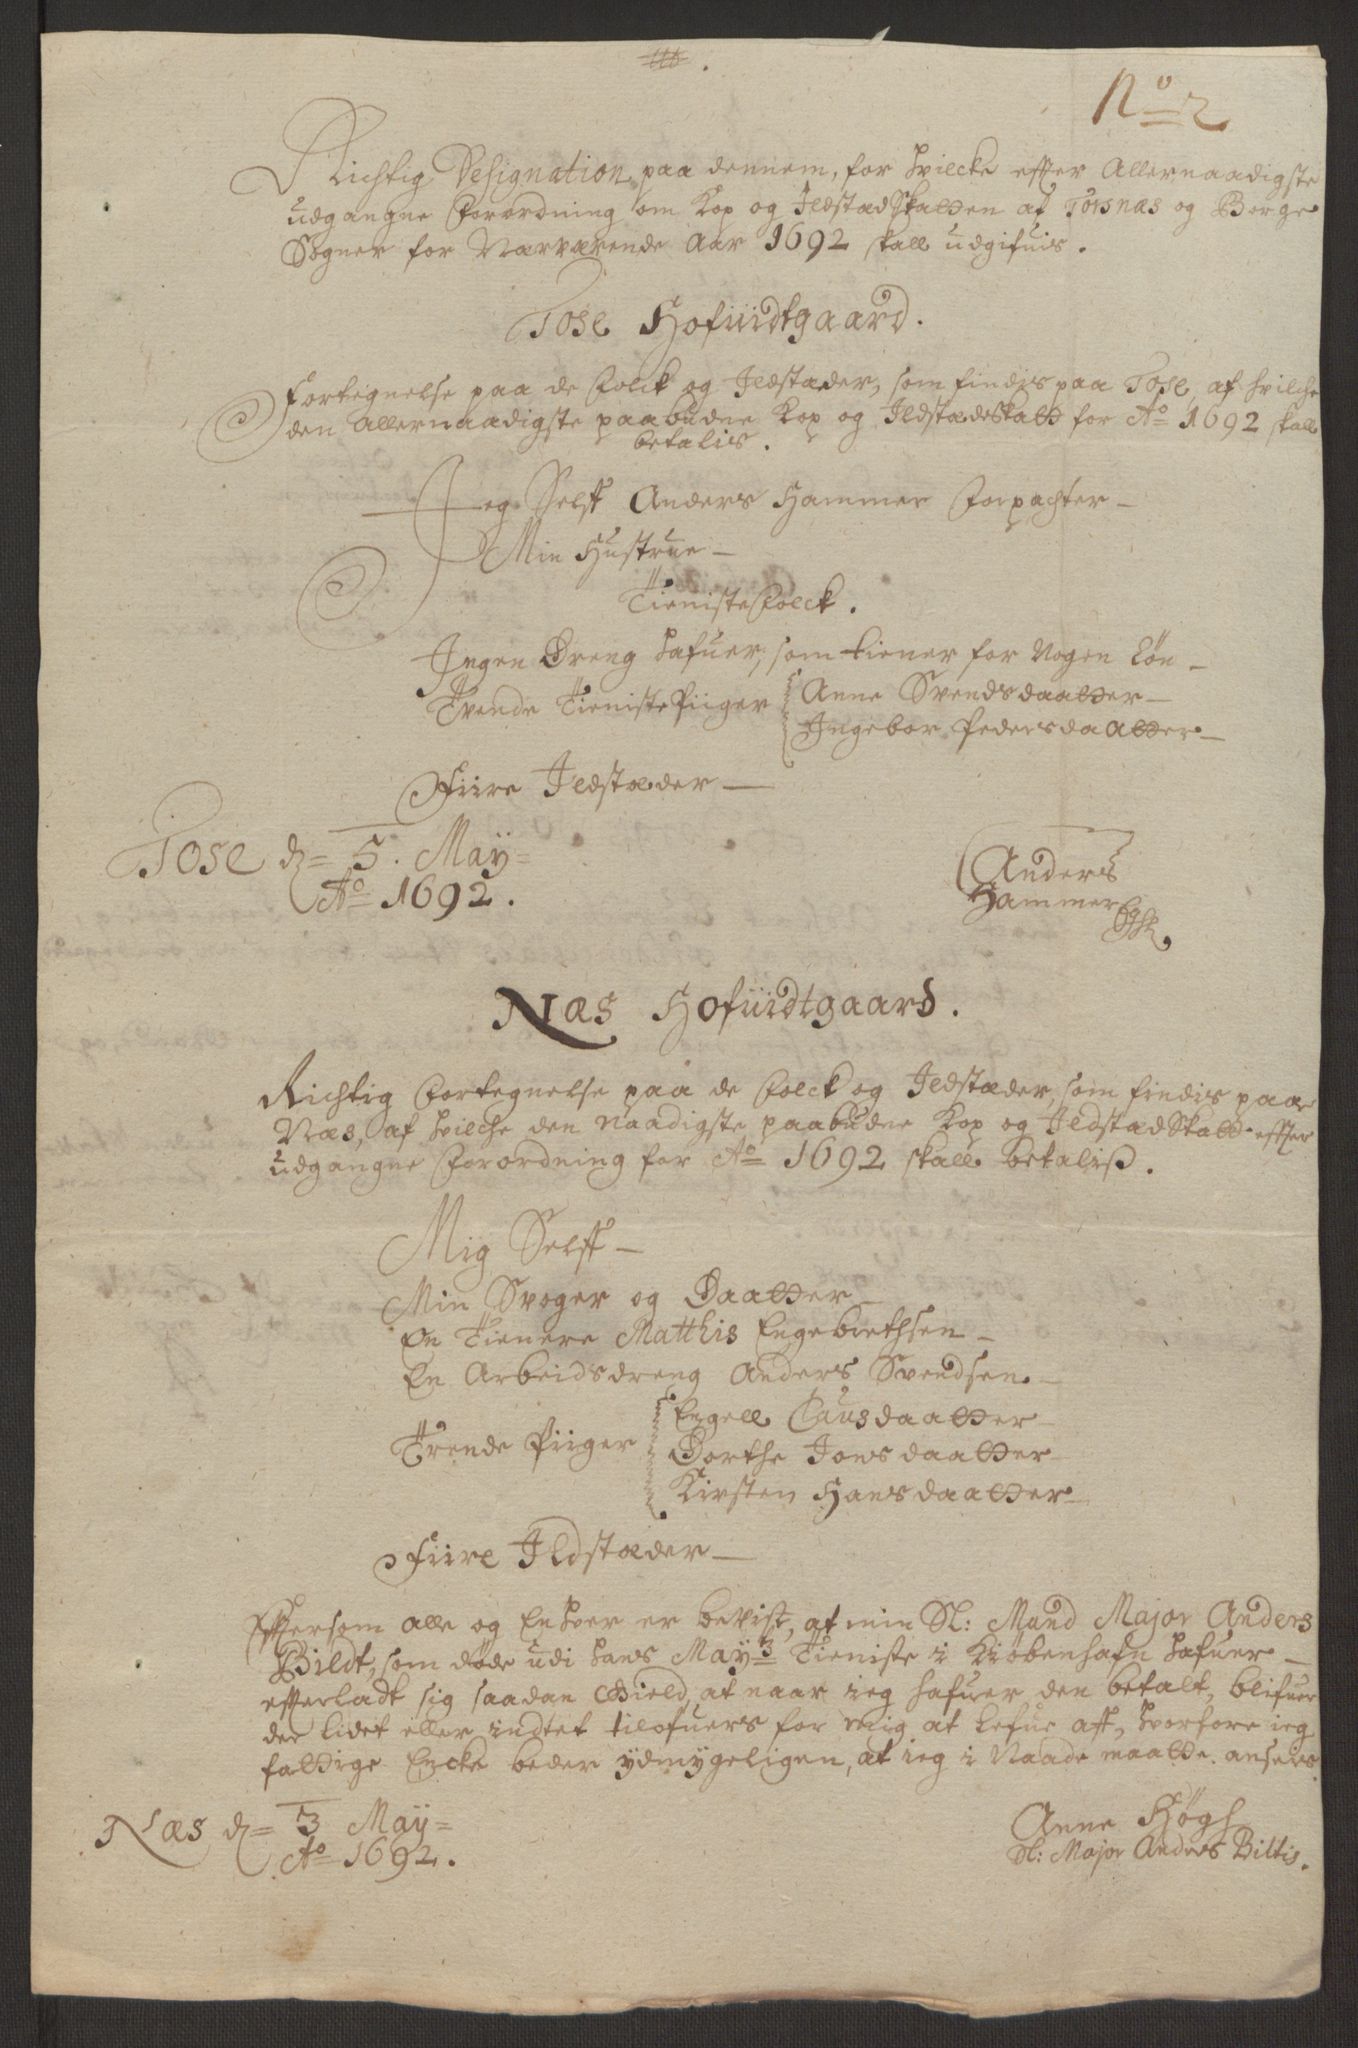 No 2
Richtig Designation paa dennem, for hvilcke effter Allernaadigste
udgangne Forordning om Kop og Ildstædskatten af Torsnæs og Borge
Sogner for Nærværende Aar 1692 skall udgifuis.
Tose Hofuidtgaard.
Fortegnelse paa de Folck og Ildstæder, som findis paa Tose, af hvilche
den allernaadigste paabudne Kop og Ildstædeskatt for Ao 1692 skall
betalis.
Jeg Selff Anders Hammer Forpachter -
Min Hustrue -
TienisteFolck.
Ingen Dreng hafuer, som tiener for Nogen Løn -
Tvende TienistePiiger Anne Svendsdaatter -
Ingebor Pedersdaatter -
Fiire Ildstæder -
Tose d= 5. May=
Ao 1692.
Anders
Hammer
Næs Hofuidtgaard.
Richtig Fortegnelse paa de Folck og Ildstæder, som findis paa
Næs, af hvilche den naadigste paabudne Kop og Ildstædskatt effter
udgangne Forordning for Ao 1692 skall betaliß.
Mig Selff -
Min Svoger og Daatter -
En Tienere Matthis Engebrethsen -
En Arbeidsdreng Anders Svendsen -
Trende Piiger Engell Clausdaatter -
Dorthe Jonsdaatter -
Kirsten Hansdaatter -
Fiire Ildstæder -
Effersom alle og Enhver er bevist, at min Sl: Mand Major Anders
Bildt, som døde udi hans Mayts Tieniste i Kiøbenhafn hafuer -
efferladt sig saadan Gield, at naar ieg hafuer den betalt, blifuer
der lidet eller indtet tilofuers for mig at lefue aff, hvorfore ieg
fattige Encke beder ydmygeligen, at ieg i Naade maatte ansees.
Næs d= 3 May=
Ao 1692.
Anne Høgh
Sl: Major Anders Biltis.